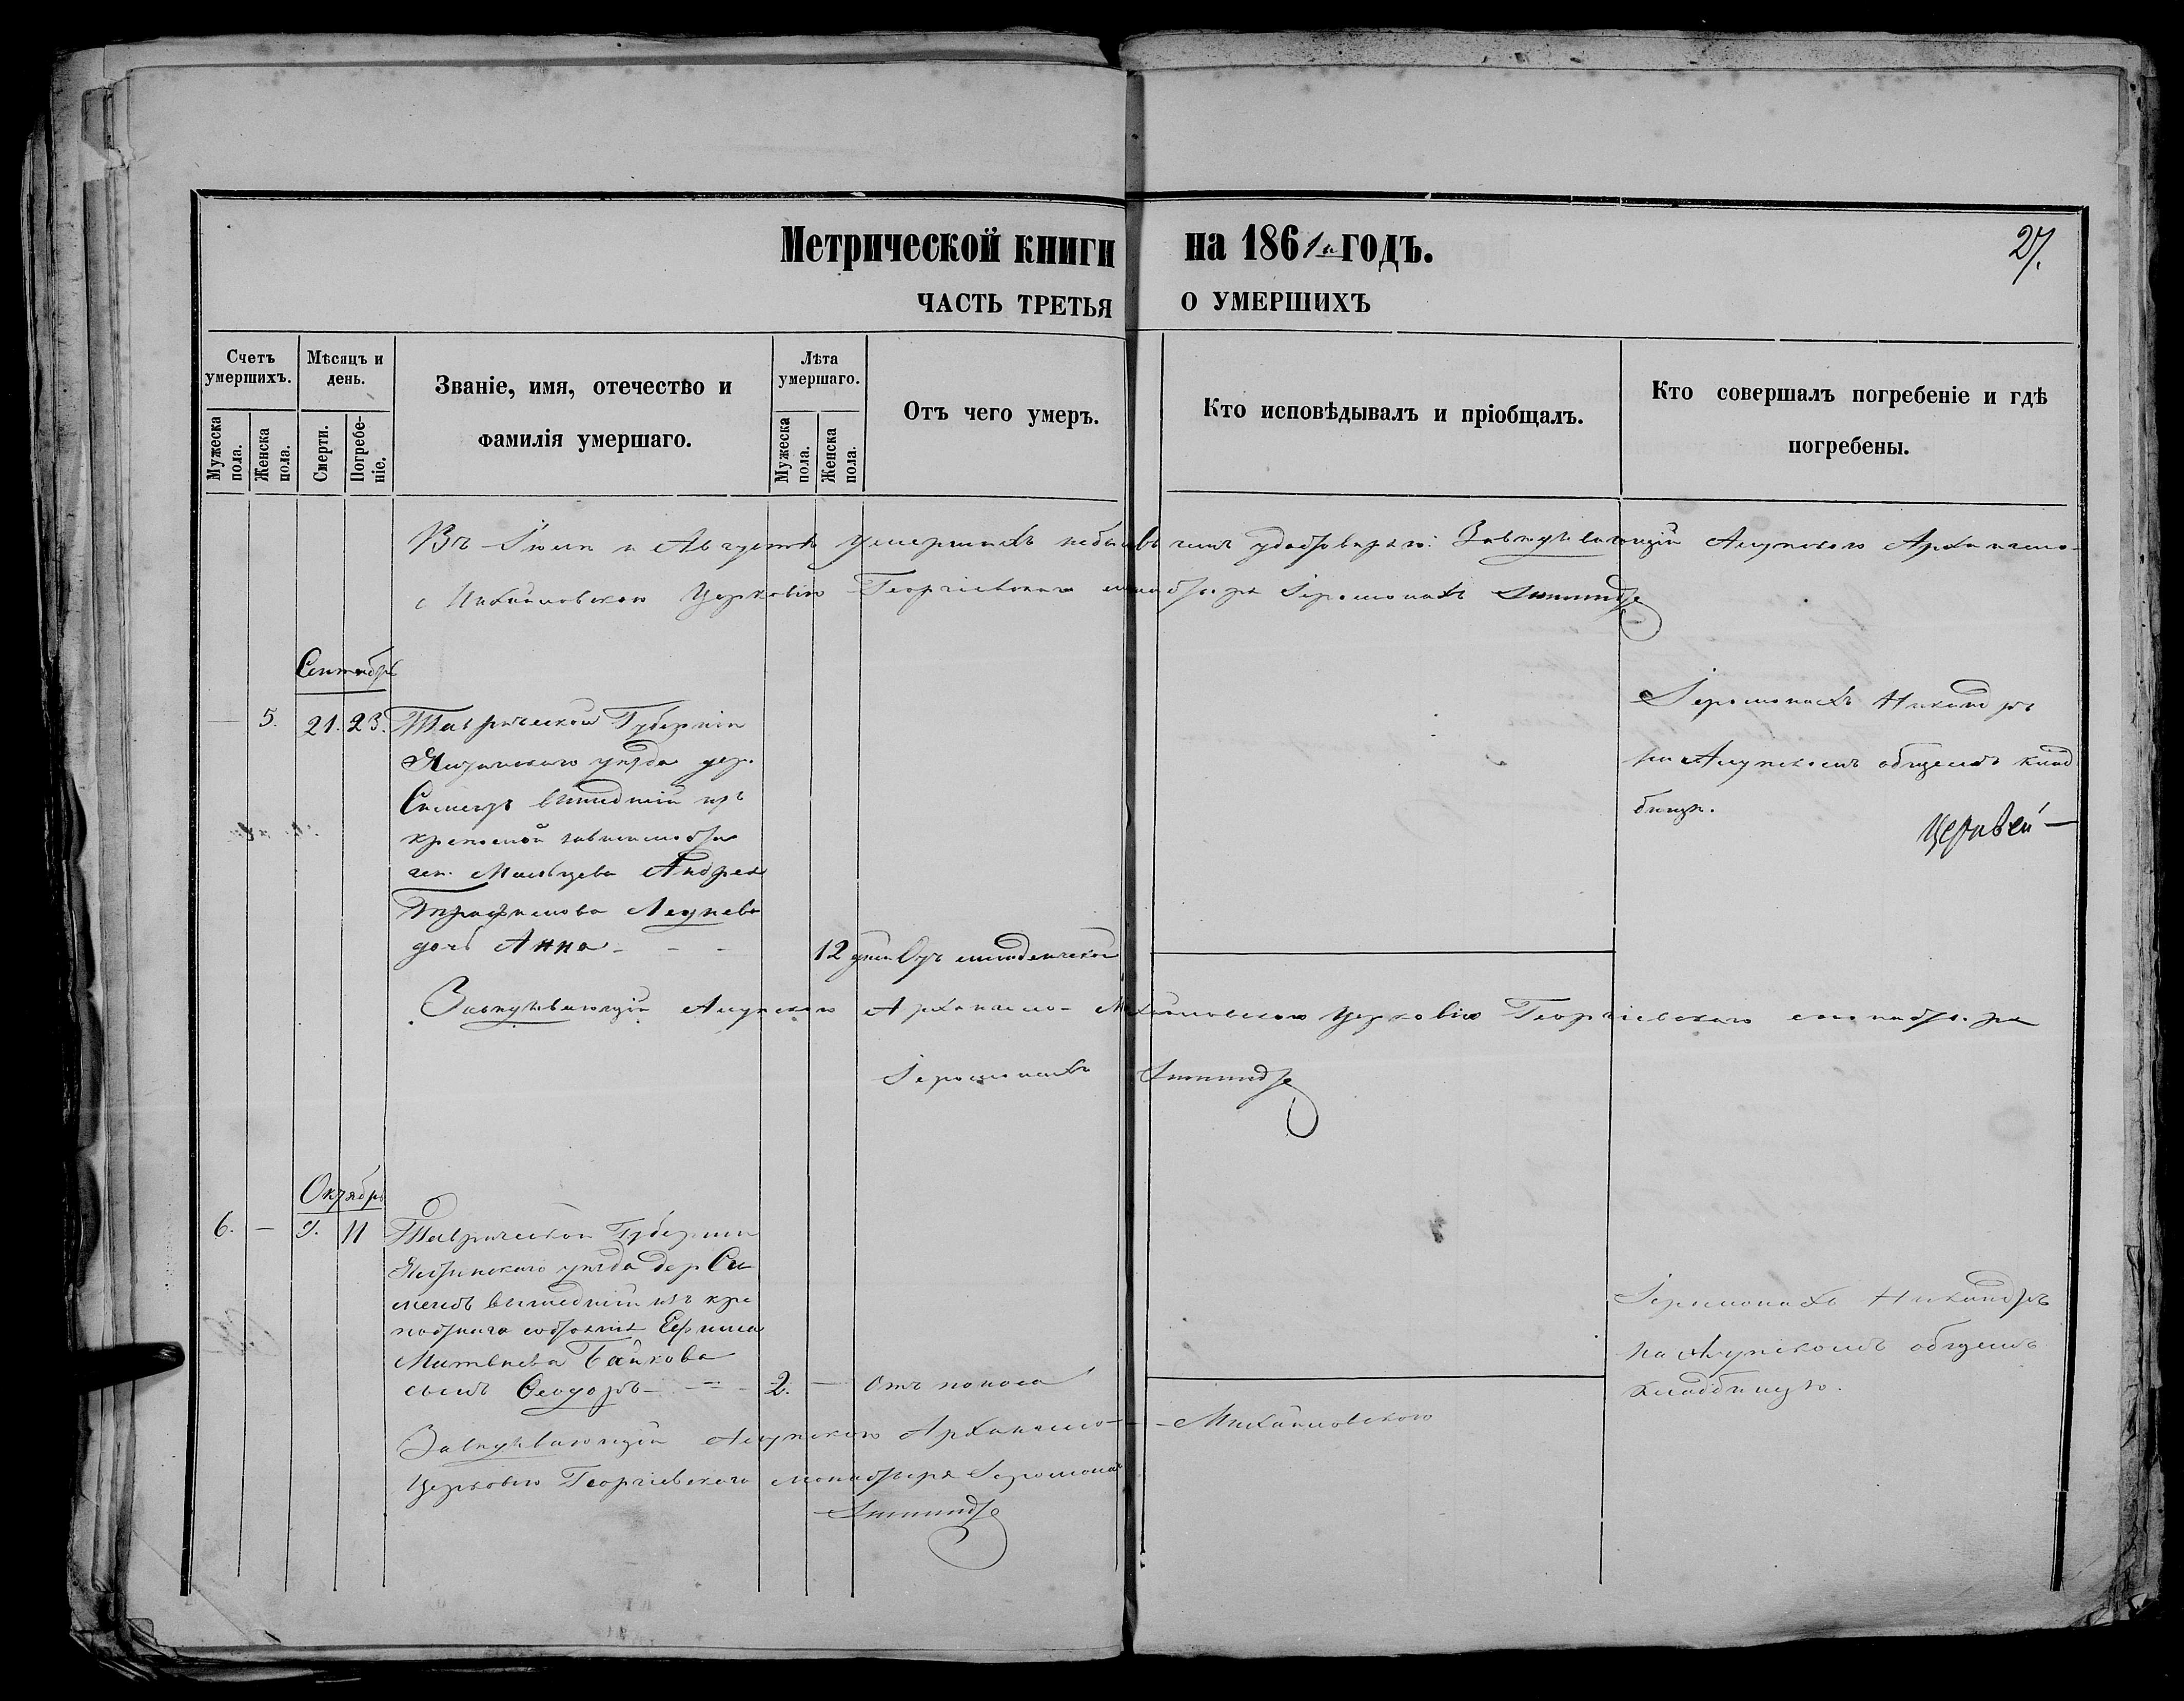 Метрической книги на 1861й годъ.
27.
ЧАСТЬ ТРЕТЬЯ О УМЕРШИХЪ
Счетъ умершихъ.
Мужеска пола.
Женска пола.
Мѣсяцъ и день.
Смерти.
Погребе-
ніе.
Званіе, имя, отечество и
фамилія умершаго.
Лѣта умершаго.
Мужеска пола.
Женска пола.
Отъ чего умеръ.
Кто исповѣдывалъ и пріобщалъ.
Кто совершалъ погребеніе и гдѣ
погребены.
Въ Іюлѣ и Августѣ умершихъ небыло въ чемъ удостовѣряю: Завѣдывающій Алупскою Архангело-
Михайловскою Церковію Георгіевскаго монастыря Іеромонахъ
Сентябрь
5. 21. 23. Таврической Губерніи
Ялтинскаго уѣзда дер.
Симеизъ вышедшій изъ
крепосной зависимости
ген. Мальцева Андрея
Трафимова
дочь Анна 12 дней Отъ младенческой
Іеромонахъ Никандръ
на Алупскомъ общемъ клад
бищѣ.
Завѣдывающій Алупскою Архангело-Михайловскою Церковію Георгіевскаго монастыря
Іеромонахъ
Октябрь
6. — 9. 11 Таврической Губерніи
Ялтинскаго уѣзда дер Си
меизъ вышедшій изъ кре
постнаго состоянія Ефима
Матвѣева Байкова
сынъ Ѳеодоръ 2. — Отъ поноса
Іеромонахъ Никандръ
на Алупскомъ общемъ
кладбищѣ.
Завѣдывающій Алупскою Архангело-Михайловскою
Церковью Георгіевскаго монастыря Іеромонах